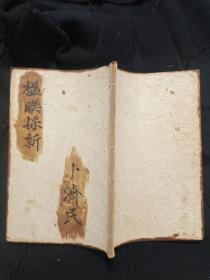 楹联採新
卜濟民